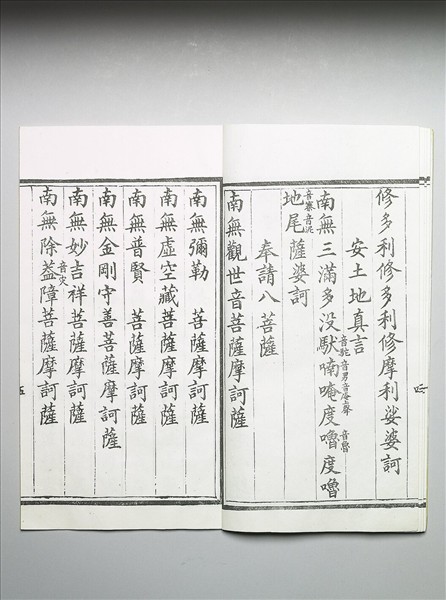 修多利修多利修摩利娑婆訶
安土地真言
南無三滿多没馱音駝喃音男唵音庵上聲度嚕音魯度嚕
地尾薩婆訶
奉請八菩薩
南無觀世音菩薩摩訶薩
南無彌勒 菩薩摩訶薩
南無虛空藏菩薩摩訶薩
南無普賢 菩薩摩訶薩
南無金剛守善菩薩摩訶薩
南無妙吉祥菩薩摩訶薩
南無除葢障菩薩摩訶薩
五